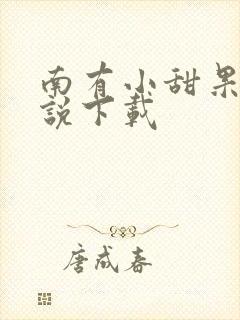 南有小甜果
說下載
唐成春